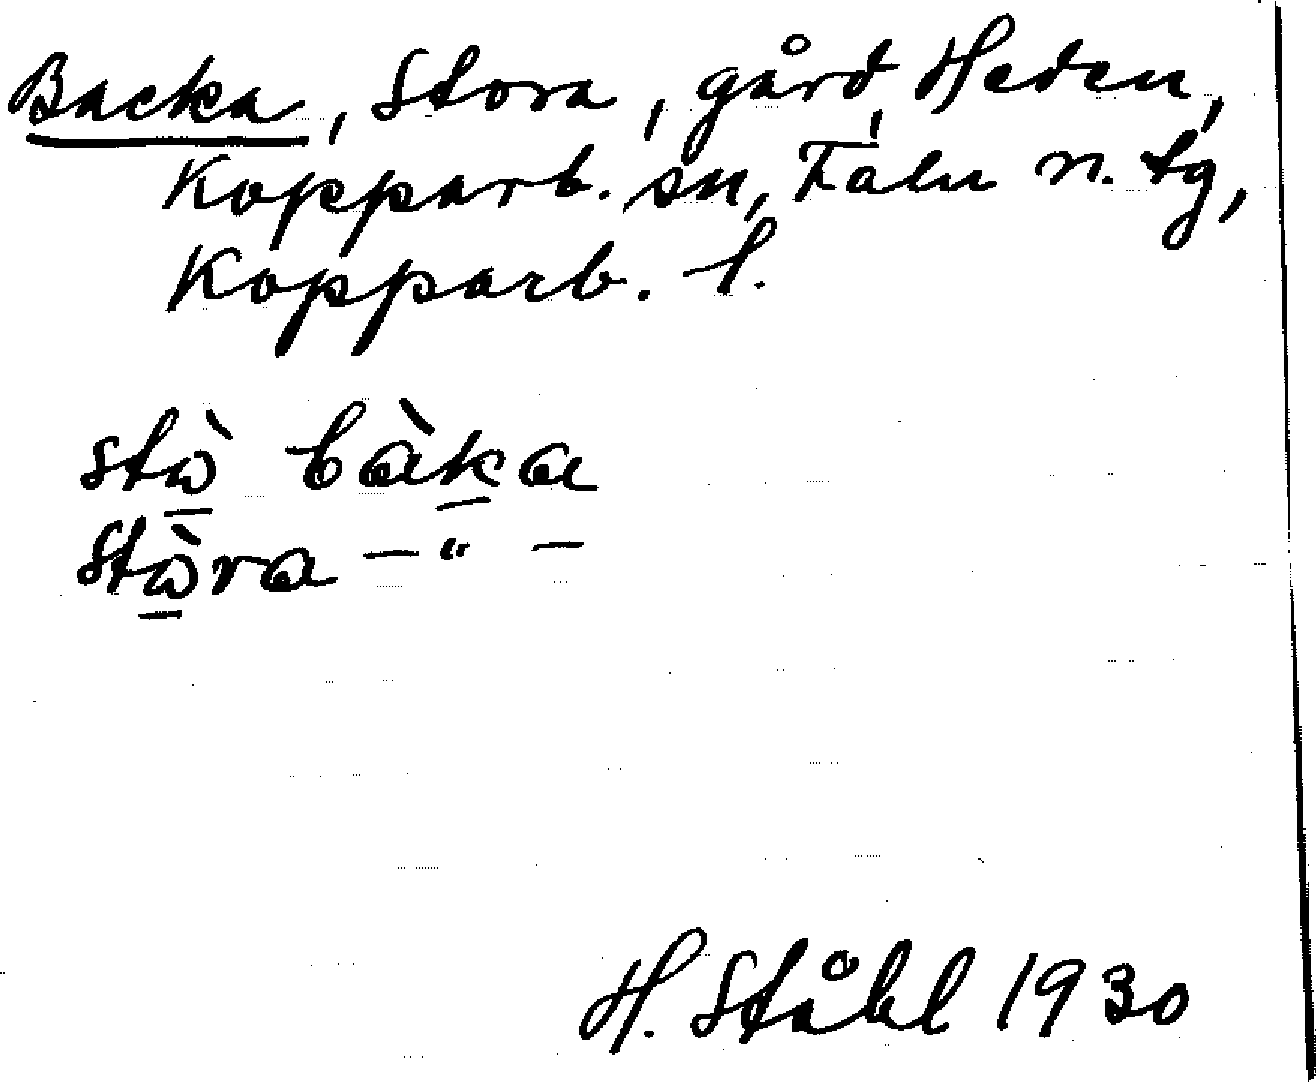 Backa, Stora, gård, Heden,
Kopparb. sn, Falu n. tg,
Kopparb. l.
stò̠ bàk̠a
stò̠ra — " —
H. Ståhl 1930